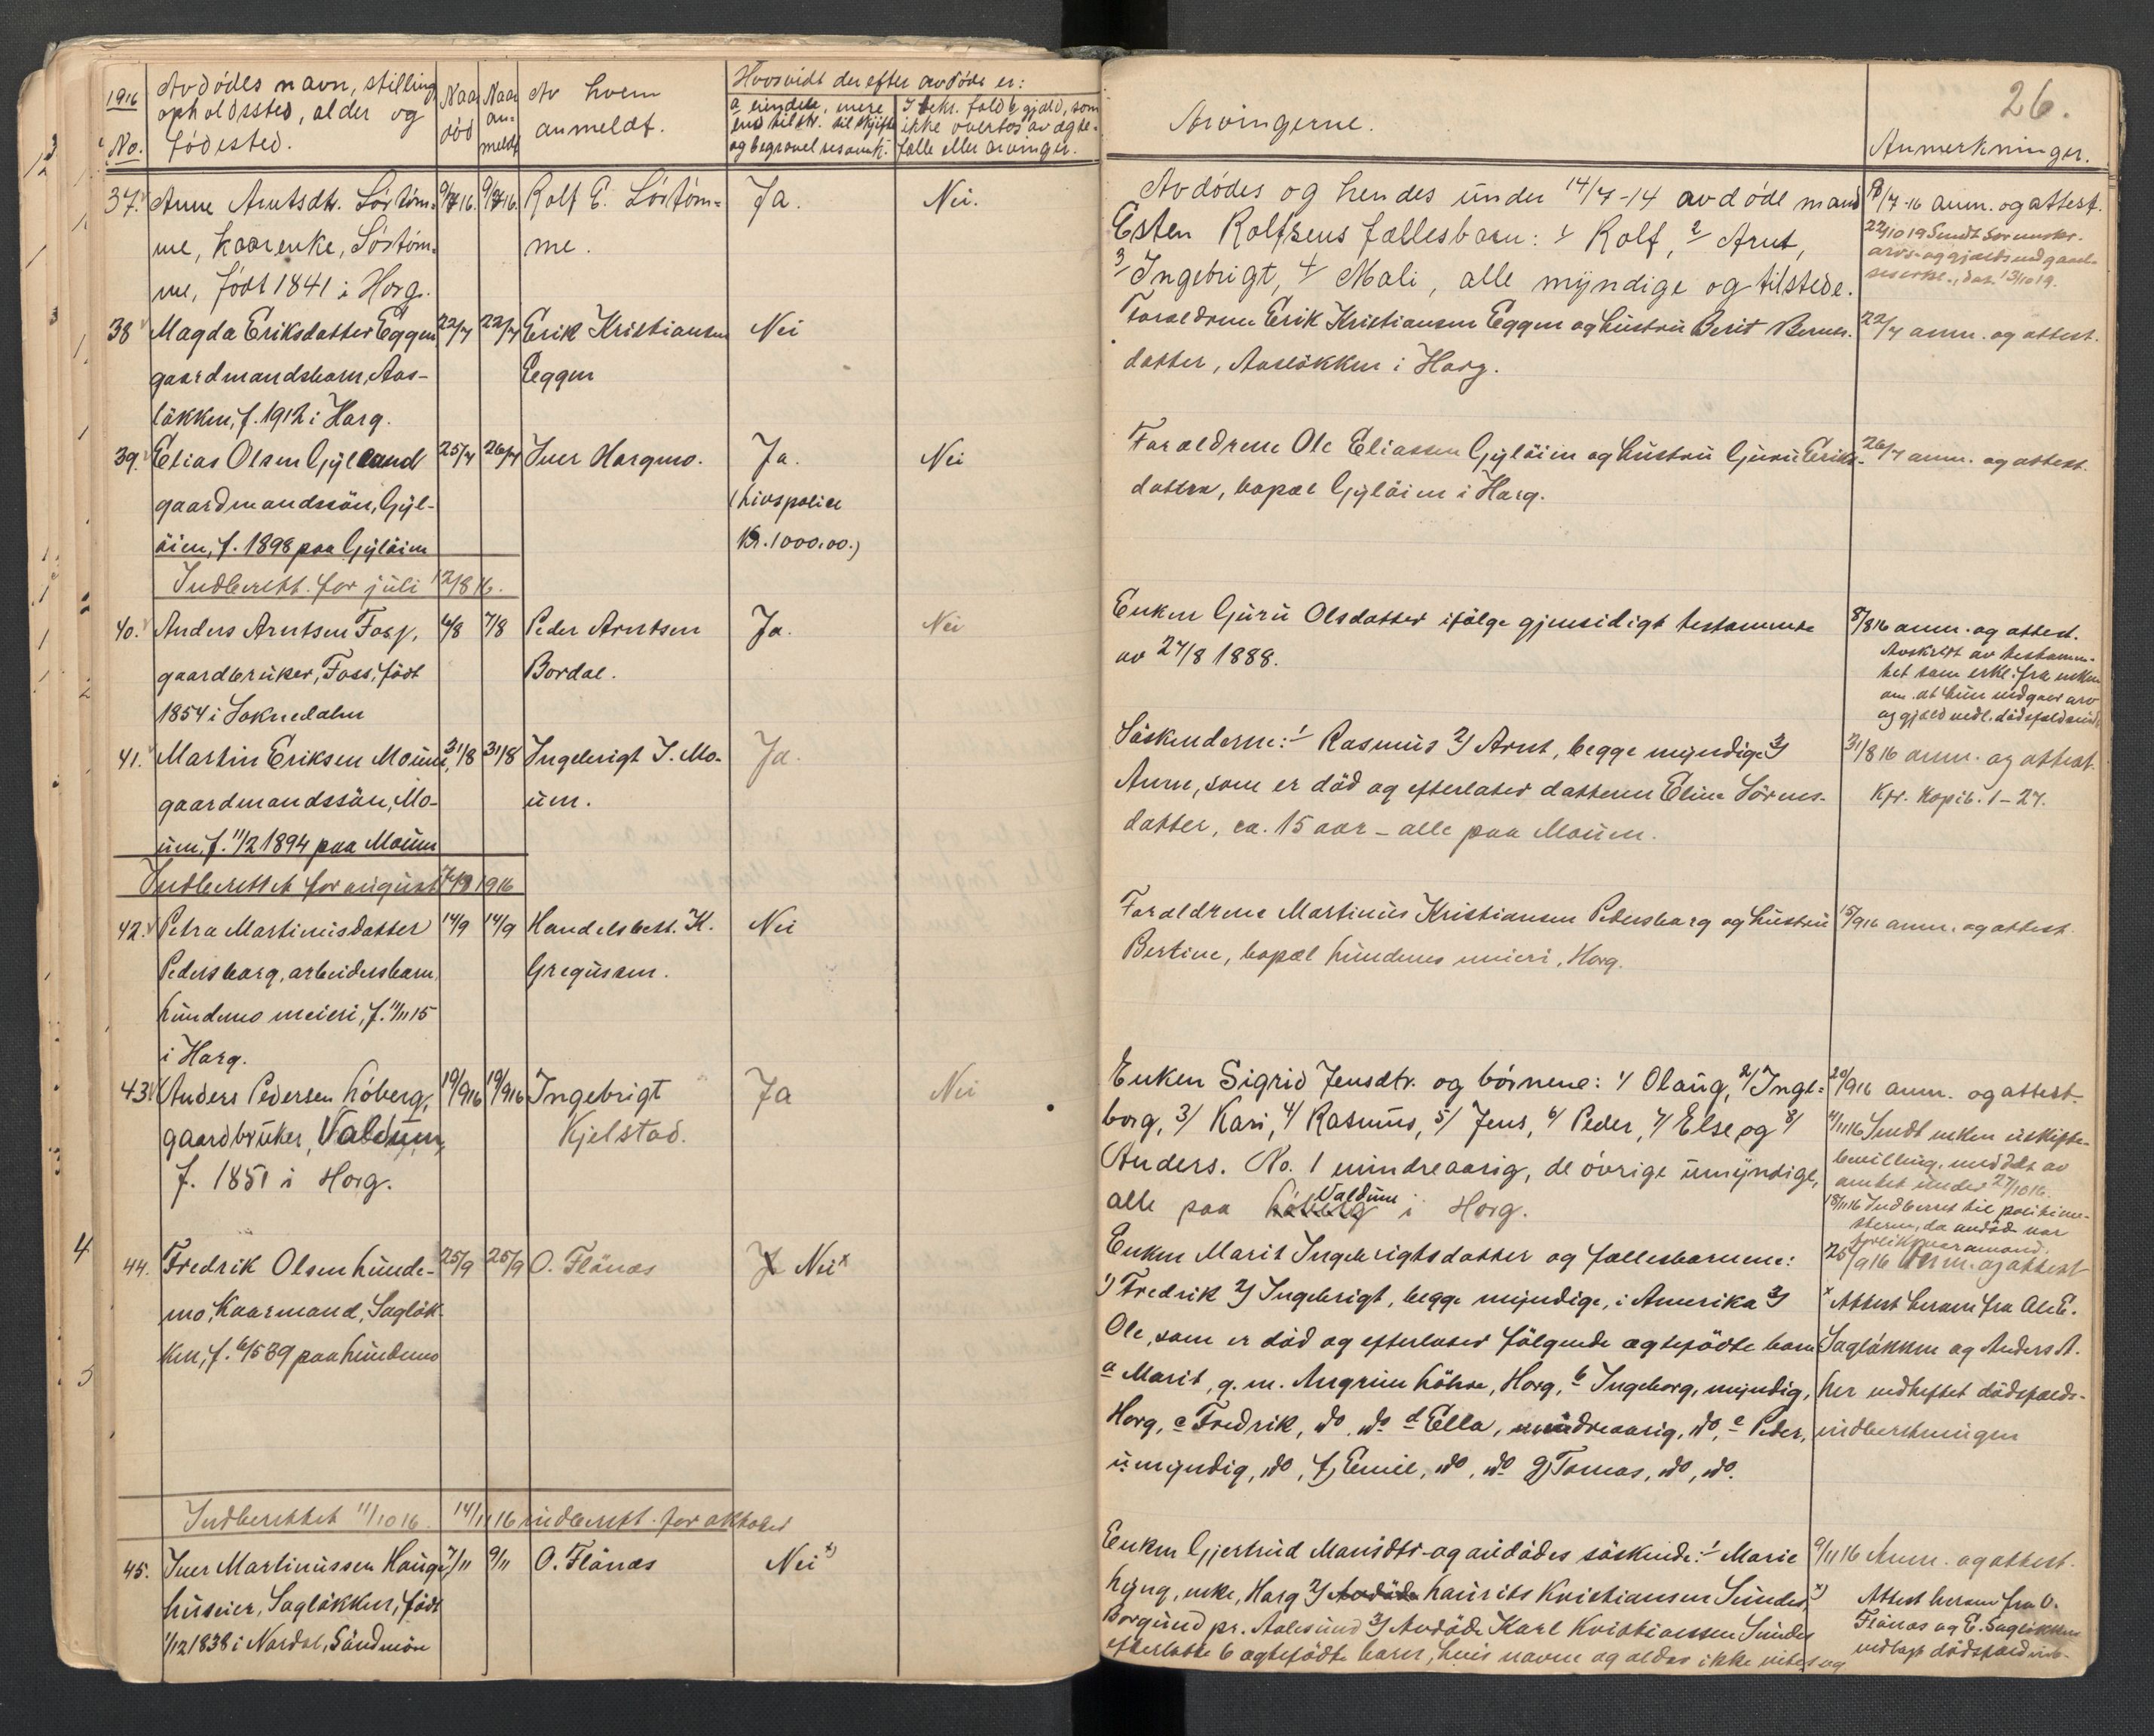 1916
No.
Avdødes navn, stilling
opholdssted, alder og
fødested.
Naar
død
Naar
an-
meldt
Av hvem
anmeldt.
Hvorvidt der efter avdøde er:
og begravelsesomk.
ikke overtas av ægte-
fælle eller arvinger.
37. Anne Arntsdtr. Sørtøm= 9/7 16. 9/7 16. Rolf E. Sørtøm= Ja. Nei.
me, kaarenke, Sørtøm= me.
me, født 1841 i Horg.
38 Magda Eriksdatter Eggen 22/7 22/7 Erik Kristiansen Nei
gaardmandsbarn, Aas- Eggen
løkken, f. 1912 i Horg.
39. Elias Olsen Gylland 25/7 26/7 Iver Horgmo. Ja. Nei
gaardmandssön, Gyl- (Livspolice
öien, f. 1898 paa Gylöien Kr. 1000.00.)
Indberett. for juli 12/8 16.
40. Anders Arntsen Foss, 6/8 7/8 Peder Arntsen Ja. Nei
gaardbruker, Foss, født Bordal.
1854 i Soknedalen
41. Martin Eriksen Moum, 31/8 31/8 Ingebrigt J. Mo- Ja.
gaardmandssön, Mo- um.
um, f. 11/2 1894 paa Moum
Indberettet for august 1916
42. Petra Martinusdatter 14/9 14/9 Handelsbest. K. Nei
Pedersborg, arbeidersbarn, Gregusson.
Lundemo meieri, f. 11/11 15
i Horg.
43. Anders Pedersen Løberg, 19/9 16 19/9 16 Ingebrigt Ja Nei
gaardbruker, Valdum, Kjelstad.
f. 1851 i Horg.
44. Fredrik Olsen Lunde- 25/9 25/9 O. Flönæs Nei x
mo, Kaarmand, Sagløk-
ken, f. 6/5 39 paa Lundemo
Indberettet 11/10 16. 14/11 16 indberett. for oktober
45. Iver Martinussen Hauge 7/11 9/11 O. Flönæs Nei x)
huseier, Sagløkken, født
1/12 1838 i Nordal, Söndmöre
26.
Arvingerne.
Anmerkninger.
Avdødes og hendes under 14/7-14 avdøde mand
Esten Rolfsens fællesbarn: 1/ Rolf, 2/ Arnt,
3/ Ingebrigt, 4/ Mali, alle myndige og tilstede.
9/7-16 anm. og attest.
Forældrene Erik Kristiansen Eggen og hustru Berit Bernts-
datter, Aasløkken i Horg.
22/7 anm. og attest.
Forældrene Ole Eliassen Gylöien og hustru Guru Eriks-
datter, bopæl Gylöien i Horg.
26/7 anm. og attest.
Enken Guru Olsdatter ifölge gjensidigt testamente
av 27/8 1888.
8/8 16 anm. og attest.
Avskrift av testamen-
tet samt erkl. fra enken
om at hun vedgaar arv
og gjæld vedl. dödsfaldsind.
Söskenderne: 1/ Rasmus 2/ Arnt, begge myndige 3/
Anne, som er död og efterlater datteren Eline Sörens-
datter, ca. 15 aar - alle paa Moum.
31/8 16 anm. og attest.
Kfr. Kopib. 1-27.
Forældrene Martinus Kristiansen Pedersborg og hustru
Bertine, bopæl Lundemo meieri, Horg.
15/9 16 anm. og attest.
Enken Sigrid Jensdtr. og børnene: 1/ Olaug, 2/ Inge=
borg, 3/ Kari, 4/ Rasmus, 5/ Jens, 6/ Peder, 7/ Else og 8/
Anders. No. 1 mindreaarig, de øvrige umyndige,
alle paa Løberg Valdum i Horg.
20/9 16 anm. og attest.
4/11 16 Sendt enken uskifte-
bevilling, meddelt av
amtet under 27/10 16.
18/11 16 Indberet til politime-
steren, da avdøde var
Enken Marit Ingebrigtsdatter og fællesbarnene:
1) Fredrik 2/ Ingebrigt, begge myndige, i Amerika 3/
Ole, som er död og efterlater fölgende ægtefödte barn
a Marit, g. m. Angrim Löhre, Horg, b Ingeborg, myndig,
Horg, c Fredrik, do, do d Ella, mindreaarig, do, e Peder,
umyndig, do, f) Emil, do, do g) Tomas, do, do.
25/9 16 Anm. og attest
x Attest herom fra Ole E.
Sagløkken og Anders A.
her vedheftet dödsfalds-
indberetningen
Enken Gjertrud Monsdtr. og avdödes söskende: 1/ Marie
Lyng, enke, Horg 2/ Avdöde Laurits Kristiansen Sunder,
Borgund pr. Aalesund 3/ Avdöde Karl Kristiansen Sunder
efterlatte 6 ægtefödte barn, hvis navne og alder ikke vites og
9/11 16 Anm. og attest.
x) Attest herom fra O.
Flönæs og E. Sagløkken
vedlagt dödsfaldsind-